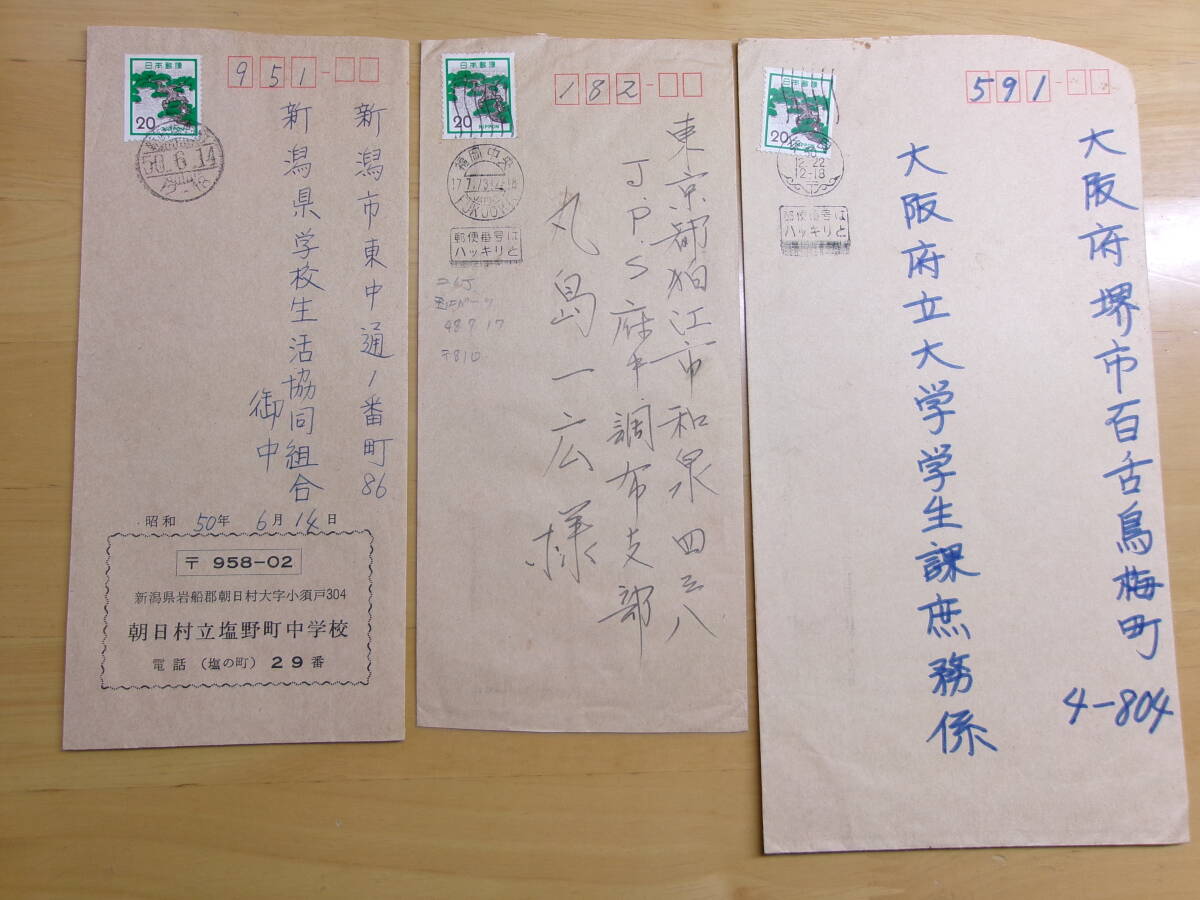 日本郵便
20
951
50.6.14
新潟市東中通1番町86
新潟県学校生活協同組合
御中
昭和 50年 6月 14日
〒 958-02
新潟県岩船郡朝日村大字小須戸304
朝日村立塩野町中学校
電話 (塩の町) 29番
日本郵便
20
NIPPON
182
福岡中央
郵便番号は
ハッキリと
東京都狛江市和泉四三八
J.P.S府中調布支部
丸島一広様
48 9 17
〒810
日本郵便
20
591
12.22
12-18
郵便番号は
ハッキリと
大阪府堺市百舌鳥梅町
4-804
大阪府立大学学生課庶務係